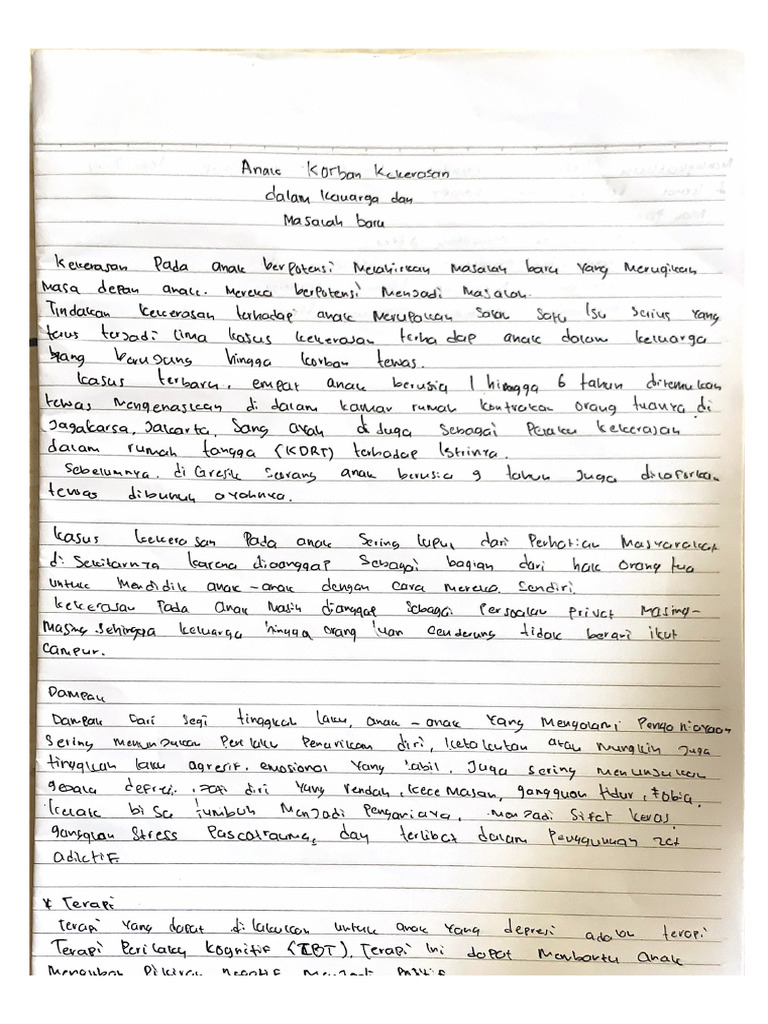 Anak Korban Kekerasan
dalam Keuarga dan
Masalah baru
Kekerasan Pada anak berpotensi Melahirkan Masalah baru yang Merugikan
Masa depan anak. Mereka berpotensi Menjadi Masalah.
Tindakan kekerasan terhadap anak Merupakan Salah Satu Isu Serius yang
terus terjadi lima kasus kekerasan terhadap anak dalam keluarga
yang berujung hingga korban tewas.
Kasus terbaru, empat anak berusia 1 hingga 6 tahun ditemukan
tewas Mengenaskan di dalam kamar rumah kontrakan orang tuanya di
Jagakarsa, Jakarta, Sang ayah di duga Sebagai Pelaku kekerasan
dalam rumah tangga (KDRT) terhadap Istrinya.
Sebelumnya, di Gresik Seorang anak berusia 9 tahun Juga dilaporkan
tewas dibunuh ayahnya.
Kasus kekerasan Pada anak Sering luput dari Perhatian Masyarakat
di Sekitarnya karena dianggap Sebagai bagian dari hak orang tua
untuk Mendidik anak-anak dengan cara Mereka Sendiri.
Kekerasan Pada Anak Masih dianggap Sebagai Persoalan privat Masing-
Masing Sehingga keluarga hingga orang luan cenderung tidak berani ikut
campur.
Dampak
Dampak Dari Segi tingkah laku, anak-anak yang Mengalami Penganiayaan
Sering menunjukan Perilaku Penarikan diri, Ketakutan atau Mungkin Juga
tingkah laku agresif, emosional yang labil. Juga Sering menunjukan
gejala depresi, Jati diri yang rendah, kecemasan, gangguan tidur, Fobia,
Kelak bisa tumbuh Menjadi Penganiaya, menjadi Sifat keras,
gangguan Stress Pascatrauma, dan terlibat dalam Penggunaan zat
adiktif.
* Terapi
Terapi yang dapat dilakukan untuk anak yang depresi adalah terapi
Terapi Perilaku Kognitif (CBT), Terapi Ini dapat Membantu Anak
Mengubah Pikiran Negatif Menjadi Positif